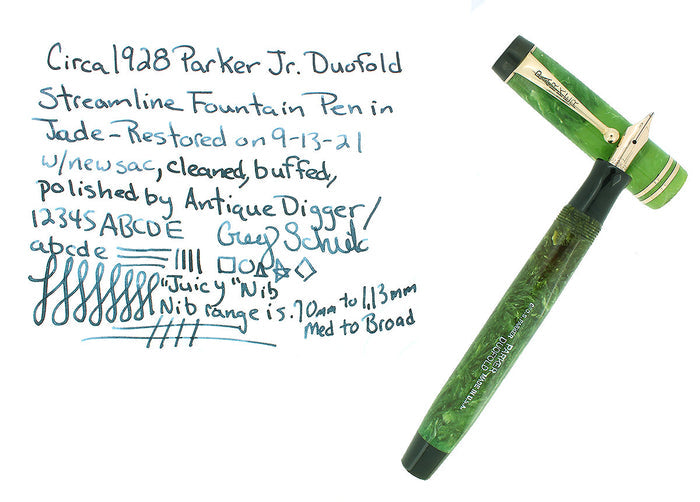 Circa 1928 Parker Jr. Duofold
Streamline Fountain Pen in
Jade-Restored on 9-13-21
w/new sac, cleaned, buffed,
polished by Antique Digger/
12345 ABCDE Greg
abcde
"Juicy" Nib
Nib range is .70mm to 1.13mm
Med to Broad
PARKER
DUOFOLD MADE IN U.S.A.